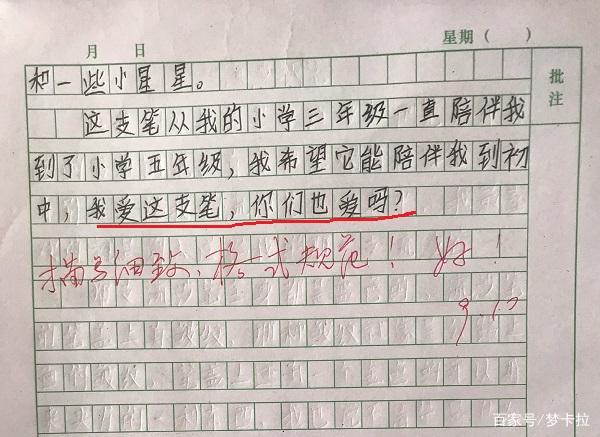 月 日 星期( )
批注
和一些小星星。
这支笔从我的小学三年级一直陪伴我
到了小学五年级,我希望它能陪伴我到初
中,我爱这支笔,你们也爱吗?
描写细致、格式规范! 好!
9.17
百家号/梦卡拉